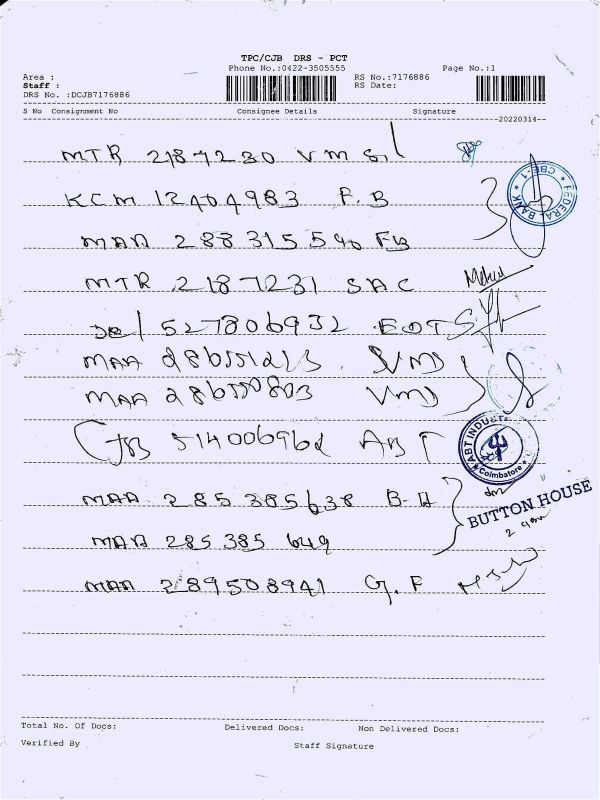 TPC/CJB DRS - PCT
Phone No.:0422-3505555 Page No.:1
Area : RS No.:7176886
Staff : RS Date:
DRS No. :DCJB7176886
S No Consignment No Consignee Details Signature
--20220314--
MTR 2187230 VMS
KCM 12404983 F.B
MAA 288315590 FB
FEDERAL BANK CBE-1
MTR 2187231 SAC
527806932 EOT
MAA VMJ
MAA VMJ
CJB 514006962 ABT
ABT INDUSTR
Coimbatore
MAA 285385638 B-H
BUTTON HOUSE
MAA 285385649
MAA 289508941 G.F
Total No. Of Docs: Delivered Docs: Non Delivered Docs:
Verified By Staff Signature